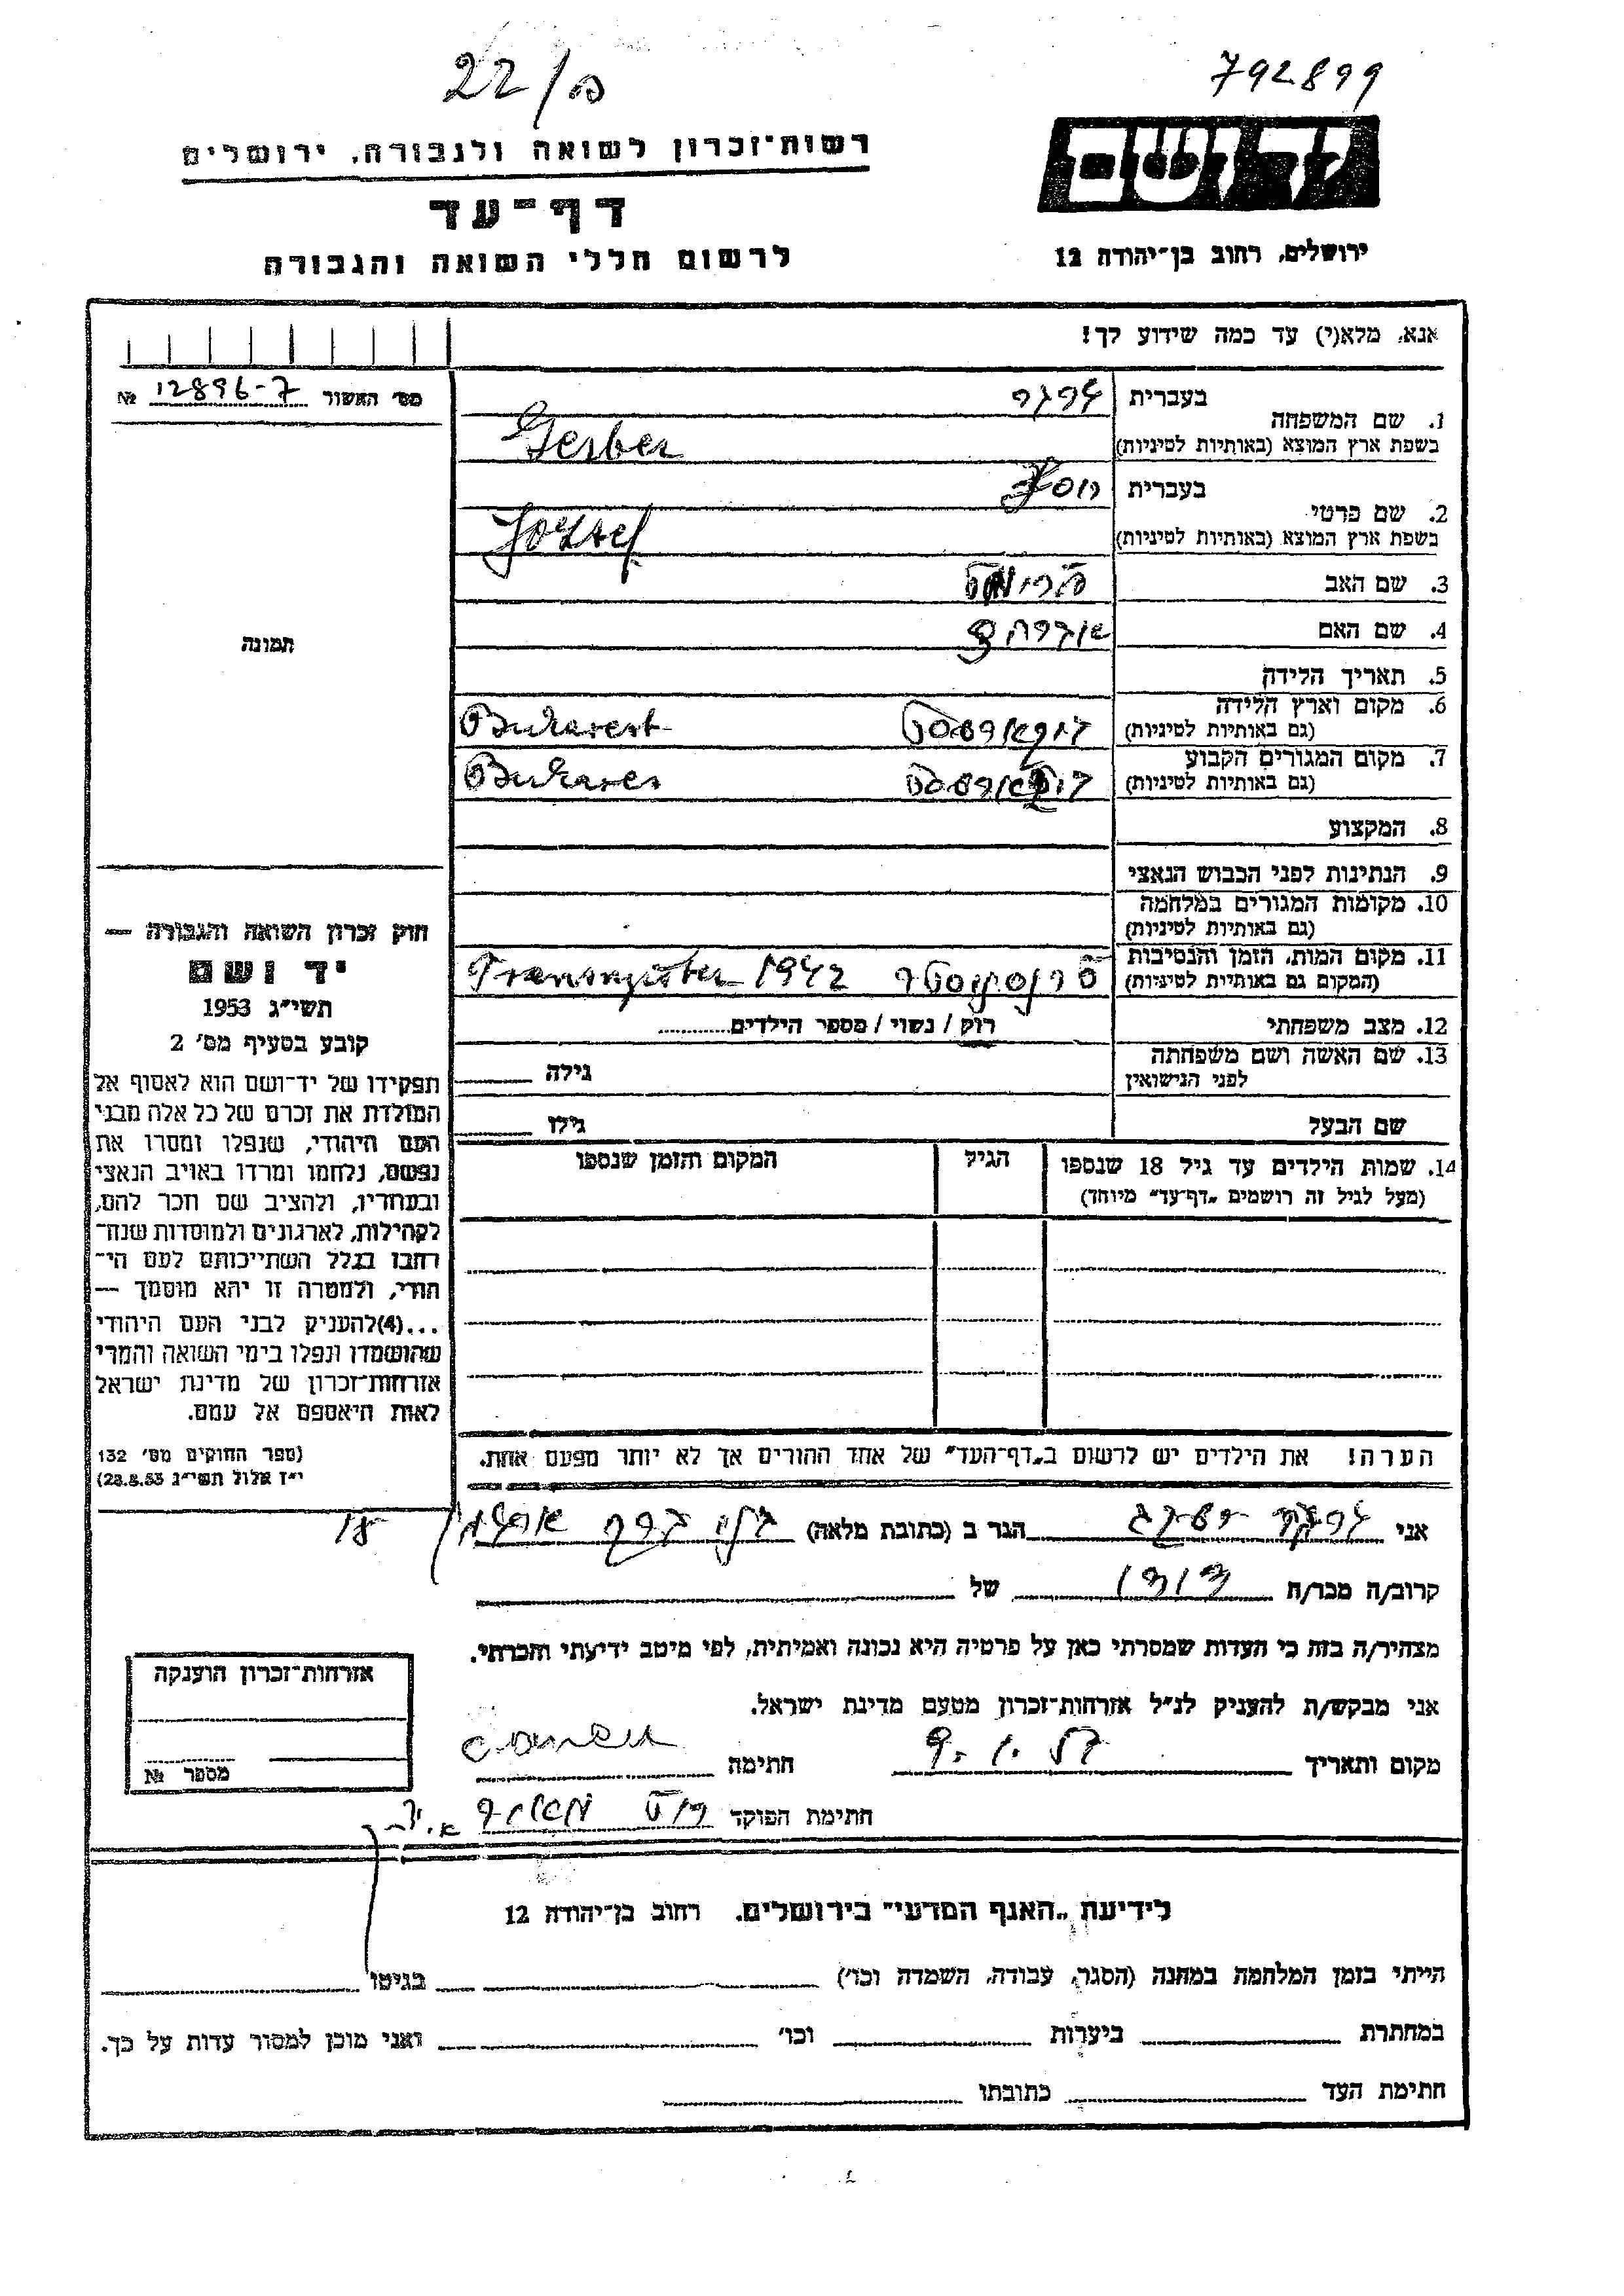 22/ה
792899
רשות־זכרון לשואה ולגבורה, ירושלים
יד ושם
דף־עד
לרשום חללי השואה והגבורה
ירושלים, רחוב בן־יהודה 12
אנא, מלא(י) עד כמה שידוע לך!
מס׳ האשור 12896-7 №
1. שם המשפחה
בעברית גרבר
בשפת ארץ המוצא (באותיות לטיניות) Gerber
2. שם פרטי
בעברית יוסף
בשפת ארץ המוצא (באותיות לטיניות) Jozsef
3. שם האב
4. שם האם
5. תאריך הלידה
6. מקום וארץ הלידה
(גם באותיות לטיניות) בוקארסט Bukarest
7. מקום המגורים הקבוע
(גם באותיות לטיניות) בוקארסט Bukares
8. המקצוע
9. הנתינות לפני הכבוש הנאצי
10. מקומות המגורים במלחמה
(גם באותיות לטיניות)
11. מקום המות, הזמן והנסיבות
(המקום גם באותיות לטיניות) 1942
12. מצב משפחתי רוק / נשוי / מספר הילדים
13. שם האשה ושם משפחתה
לפני הנישואין גילה
שם הבעל גילו
14. שמות הילדים עד גיל 18 שנספו הגיל המקום והזמן שנספו
(מעל לגיל זה רושמים „דף־עד״ מיוחד)
הערה! את הילדים יש לרשום ב„דף־העד״ של אחד ההורים אך לא יותר מפעם אחת.
תמונה
חוק זכרון השואה והגבורה —
יד ושם
תשי״ג 1953
קובע בסעיף מס׳ 2
תפקידו של יד־ושם הוא לאסוף אל
המולדת את זכרם של כל אלה מבני
העם היהודי, שנפלו ומסרו את
נפשם, נלחמו ומרדו באויב הנאצי
ובעוזריו, ולהציב שם וזכר להם,
לקהילות, לארגונים ולמוסדות שנח־
רבו בגלל השתייכותם לעם הי־
הודי, ולמטרה זו יהא מוסמך —
...(4)להעניק לבני העם היהודי
שהושמדו ונפלו בימי השואה והמרי
אזרחות־זכרון של מדינת ישראל
לאות היאספם אל עמם.
(ספר החוקים מס׳ 132
י״ז אלול תשי״ג 28.8.53)
אני הגר ב (כתובת מלאה)
קרוב/ה מכר/ה של
מצהיר/ה בזה כי העדות שמסרתי כאן על פרטיה היא נכונה ואמיתית, לפי מיטב ידיעתי והכרתי.
אני מבקש/ת להעניק לנ״ל אזרחות־זכרון מטעם מדינת ישראל.
מקום ותאריך חתימה
חתימת הפוקד
אזרחות־זכרון הוענקה
מספר №
לידיעת „האגף המדעי״ בירושלים. רחוב בן־יהודה 12
הייתי בזמן המלחמה במחנה (הסגר, עבודה, השמדה וכו׳) בגיטו
במחתרת ביערות וכו׳ ואני מוכן למסור עדות על כך.
חתימת העד כתובתו